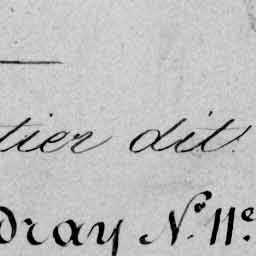 tier dit
dray N.º 11.e